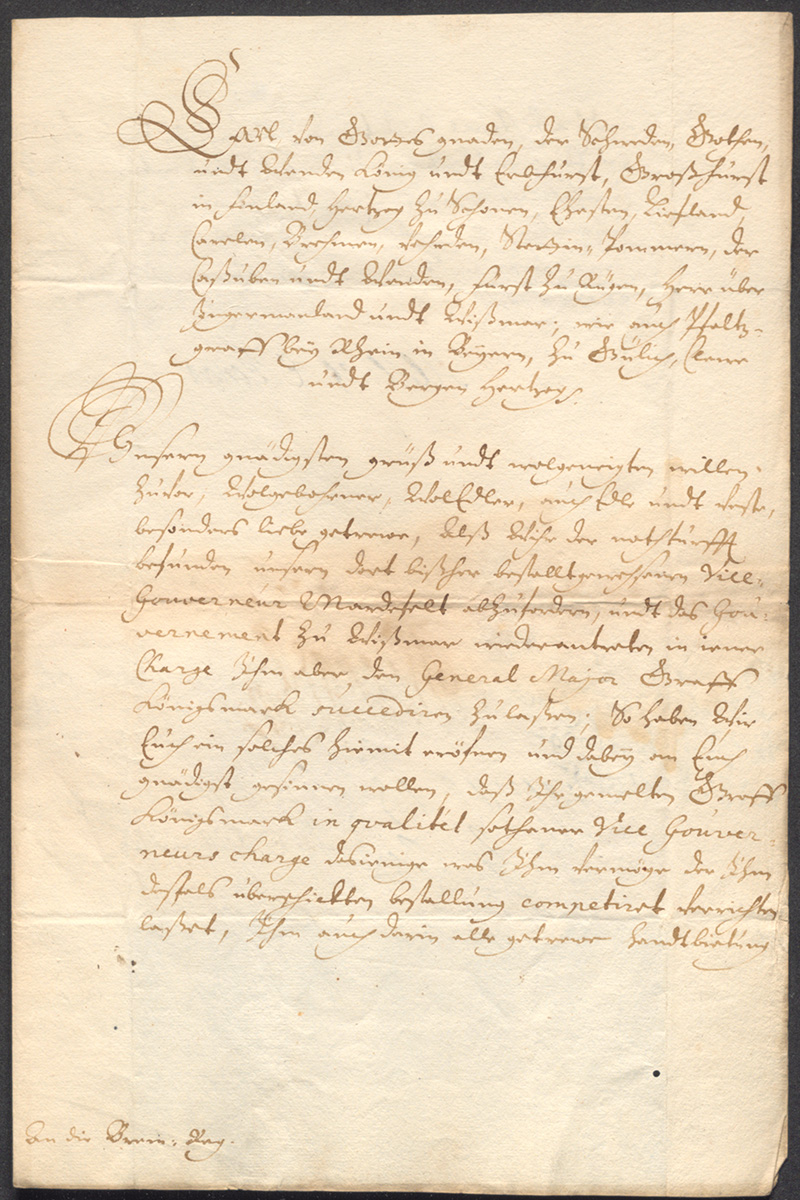 Carl von Gottes gnaden, der Schweden, Gothen,
undt Wenden König undt Erbfürst, Großfürst
in Finland, Hertzog zu Schonen, Ehesten, Liefland,
Carelen, Brehmen, Vehrden, Stettin, Pommern, der
Caßuben undt Wenden, Fürst zu Rügen, Herr über
Ingermanland undt Wißmar; wie auch Pfaltz-
graff bey Rhein in Beyern, zu Gülich, Cleve
undt Bergen Hertzog.
Unsern gnädigsten gruß undt wolgeneigten willen
zuvor, Wolgebohrner, WolEdler, auch Edle undt Veste,
besonders liebe getrewe, Alß Wihr der nothturfft
befunden unsern dort bißher bestalltgewesenen Vice-
Gouverneur Mardefelt abzufordern, undt das Gou-
vernement zu Wißmar wiederantreten in iener
Charge Ihm aber, den General Major Graff
Königsmark succediren zulaßen; So haben Wir
Euch ein solches hiemit eröfnen und dabey an Euch
gnädigst gesinnen wollen, daß Ihr gemelten Graff
Königsmark in qvalitét sothaner Vice Gouver-
neurs charge dasienige was Ihm vermöge der Ihm
desfals überschickten bestallung competiret verrichten
laßet, Ihm auch darin alle getrewe handtbietung
An die Brem: Reg.